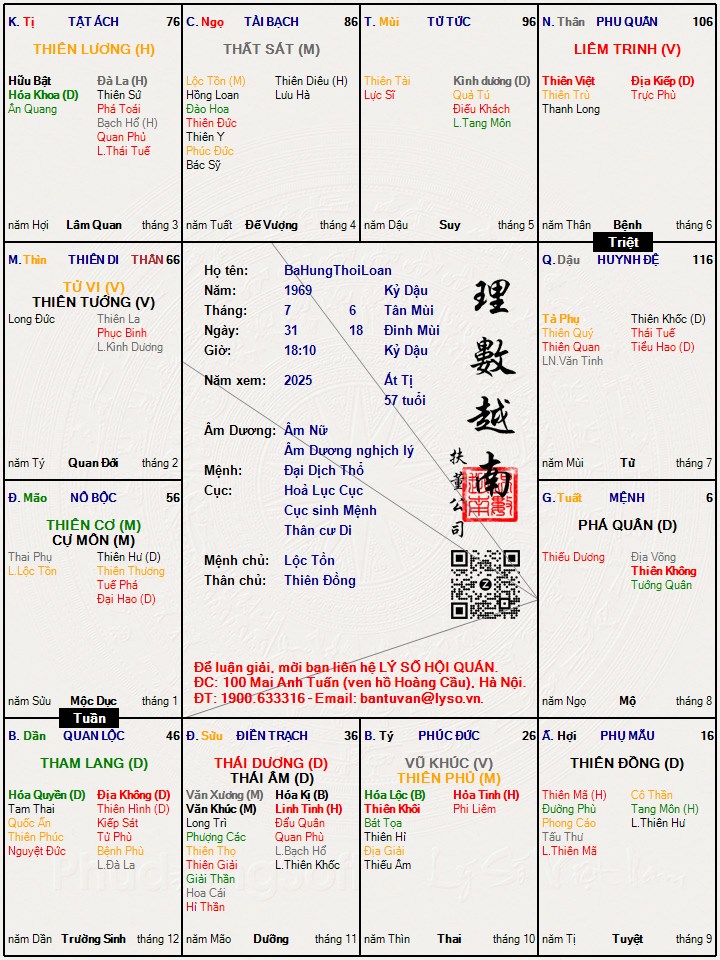 K. Tị TẬT ÁCH 76
THIÊN LƯƠNG (H)
Hữu Bật
Hóa Khoa (D)
Ân Quang
Đà La (H)
Thiên Sứ
Phá Toái
Bạch Hổ (H)
Quan Phủ
L.Thái Tuế
năm Hợi Lâm Quan tháng 3
C. Ngọ TÀI BẠCH 86
THẤT SÁT (M)
Lộc Tồn (M)
Hồng Loan
Đào Hoa
Thiên Đức
Thiên Y
Phúc Đức
Bác Sỹ
Thiên Diêu (H)
Lưu Hà
năm Tuất Đế Vượng tháng 4
T. Mùi TỬ TỨC 96
Thiên Tài
Lực Sĩ
Kình dương (D)
Quả Tú
Điếu Khách
L.Tang Môn
năm Dậu Suy tháng 5
N. Thân PHU QUÂN 106
LIÊM TRINH (V)
Thiên Việt
Thiên Trù
Thanh Long
Địa Kiếp (D)
Trực Phù
năm Thân Bệnh tháng 6
Triệt
M. Thìn THIÊN DI THÂN 66
TỬ VI (V)
THIÊN TƯỚNG (V)
Long Đức
Thiên La
Phục Binh
L.Kình Dương
năm Tý Quan Đới tháng 2
Họ tên: BaHungThoiLoan
Năm: 1969 Kỷ Dậu
Tháng: 7 6 Tân Mùi
Ngày: 31 18 Đinh Mùi
Giờ: 18:10 Kỷ Dậu
Năm xem: 2025 Ất Tị
57 tuổi
Âm Dương: Âm Nữ
Âm Dương nghịch lý
Mệnh: Đại Dịch Thổ
Cục: Hoả Lục Cục
Cục sinh Mệnh
Thân cư Di
Mệnh chủ: Lộc Tồn
Thân chủ: Thiên Đồng
理數越南
扶董公司
Để luận giải, mời bạn liên hệ LÝ SỐ HỘI QUÁN.
ĐC: 100 Mai Anh Tuấn (ven hồ Hoàng Cầu), Hà Nội.
ĐT: 1900.633316 - Email: bantuvan@lyso.vn.
Q. Dậu HUYNH ĐỆ 116
Tả Phụ
Thiên Quý
Thiên Quan
LN.Văn Tinh
Thiên Khốc (D)
Thái Tuế
Tiểu Hao (D)
năm Mùi Tử tháng 7
Đ. Mão NÔ BỘC 56
THIÊN CƠ (M)
CỰ MÔN (M)
Thai Phụ
L.Lộc Tồn
Thiên Hư (D)
Thiên Thương
Tuế Phá
Đại Hao (D)
năm Sửu Mộc Dục tháng 1
G. Tuất MỆNH 6
PHÁ QUÂN (D)
Thiếu Dương
Địa Võng
Thiên Không
Tướng Quân
năm Ngọ Mộ tháng 8
Tuần
B. Dần QUAN LỘC 46
THAM LANG (D)
Hóa Quyền (D)
Tam Thai
Quốc Ấn
Thiên Phúc
Nguyệt Đức
Địa Không (D)
Thiên Hình (D)
Kiếp Sát
Tử Phù
Bệnh Phù
L.Đà La
năm Dần Trường Sinh tháng 12
Đ. Sửu ĐIỀN TRẠCH 36
THÁI DƯƠNG (D)
THÁI ÂM (D)
Văn Xương (M)
Văn Khúc (M)
Long Trì
Phượng Các
Thiên Thọ
Thiên Giải
Giải Thần
Hoa Cái
Hỉ Thần
Hóa Kị (B)
Linh Tinh (H)
Đẩu Quân
Quan Phù
L.Bạch Hổ
L.Thiên Khốc
năm Mão Dưỡng tháng 11
B. Tý PHÚC ĐỨC 26
VŨ KHÚC (V)
THIÊN PHỦ (M)
Hóa Lộc (B)
Thiên Khôi
Bát Tọa
Thiên Hỉ
Địa Giải
Thiếu Âm
Hỏa Tinh (H)
Phi Liêm
năm Thìn Thai tháng 10
Ấ. Hợi PHỤ MẪU 16
THIÊN ĐỒNG (D)
Thiên Mã (H)
Đường Phù
Phong Cáo
Tấu Thư
L.Thiên Mã
Cô Thần
Tang Môn (H)
L.Thiên Hư
năm Tị Tuyệt tháng 9